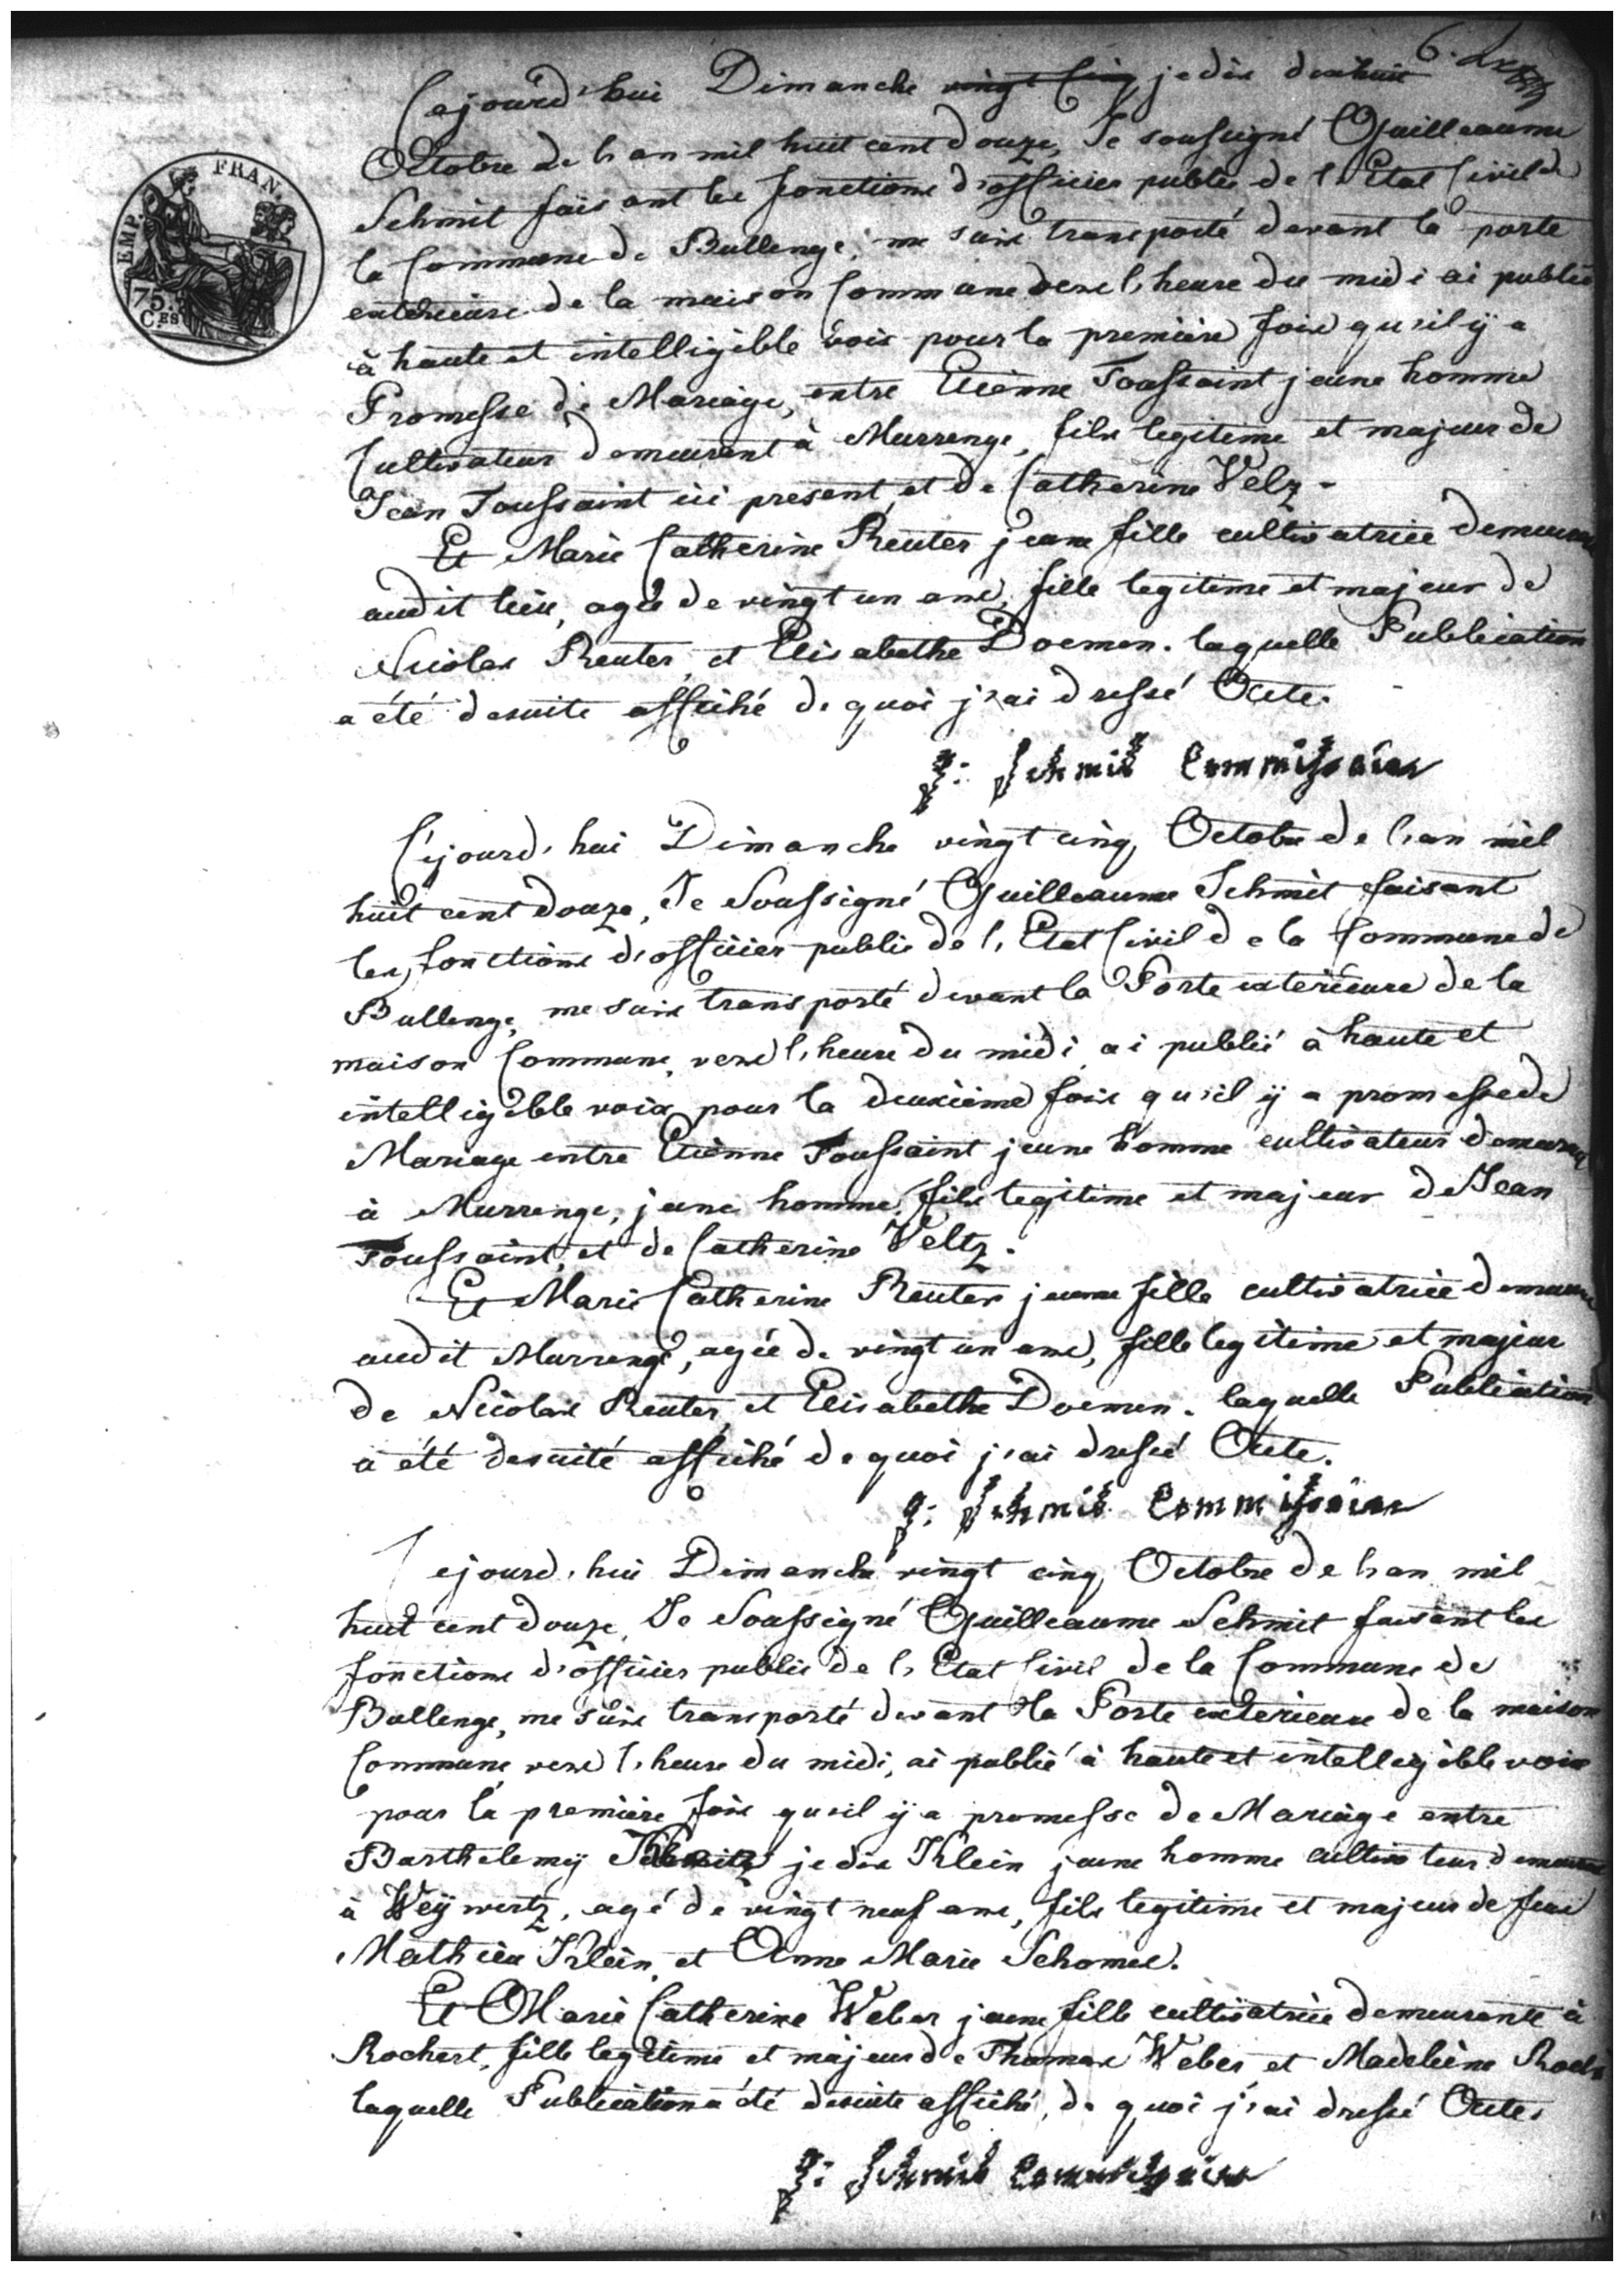 6.
Cejourd'hui Dimanche vingt Cinq je dis dixhuit
Octobre de l'an mil huit cent douze, Je soussigné Guilleaume
Schmit faisant les fonctions d'officier public de l'Etat Civil de
la Commune de Bullenge, me suis transporté devant la porte
extérieure de la maison Commune vers l'heure du midi ai publié
à haute et intelligible voix pour la première fois qu'il ÿ a
Promesse de Mariage, entre Etienne Toussaint jeune homme
Cultivateur demeurant à Murrenge, fils legitime et majeur de
Jean Toussaint ici present, et de Catherine Velz.
Et Marie Catherine Reuter jeune fille cultivatrice demeurant
audit lieu, agée de vingt un ans, fille legitime et majeur de
Nicolas Reuter, et Elisabethe Doemen. laquelle Publication
a été desuite affiché de quoi j'ai dressé Acte.
g: Schmit Commissaire
Cejourd'hui Dimanche vingt cinq Octobre de l'an mil
huit cent douze, Je Soussigné Guilleaume Schmit faisant
les fonctions d'officier public de l'Etat Civil de la Commune de
Bullenge, me suis transporté devant la Porte extérieure de la
maison Commune, vers l'heure du midi, ai publié à haute et
intelligible voix pour la deuxième fois qu'il ÿ a promesse de
Mariage entre Etienne Toussaint jeune homme cultivateur demeurant
à Murrenge, jeune homme, fils legitime et majeur de Jean
Toussaint, et de Catherine Veltz.
Et Marie Catherine Reuter jeune fille cultivatrice demeurant
audit Murrenge, agée de vingt un ans, fille legitime et majeur
de Nicolas Reuter, et Elisabethe Doemen. laquelle Publication
a été desuite affiché de quoi j'ai dressé Acte.
g: Schmit Commissaire
Cejourd'hui Dimanche vingt cinq Octobre de l'an mil
huit cent douze, Je Soussigné Guilleaume Schmit faisant les
fonctions d'officier public de l'Etat Civil de la Commune de
Bullenge, me suis transporté devant la Porte extérieure de la maison
Commune vers l'heure du midi, ai publié à haute et intelligible voix
pour la première fois qu'il ÿ a promesse de Mariage entre
Barthelemÿ je dis Klein jeune homme cultivateur demeurant
à Weÿwertz, agé de vingt neuf ans, fils legitime et majeur de feu
Mathieu Klein, et Anne Marie Schomes.
Et Marie Catherine Weber jeune fille cultivatrice demeurante à
Rochert, fille legitime et majeur de Thomas Weber et Madeleine
laquelle Publication a été desuite affiché, de quoi j'ai dressé Acte.
g: Schmit Commissaire
EMP. FRAN.
75.
C.ES